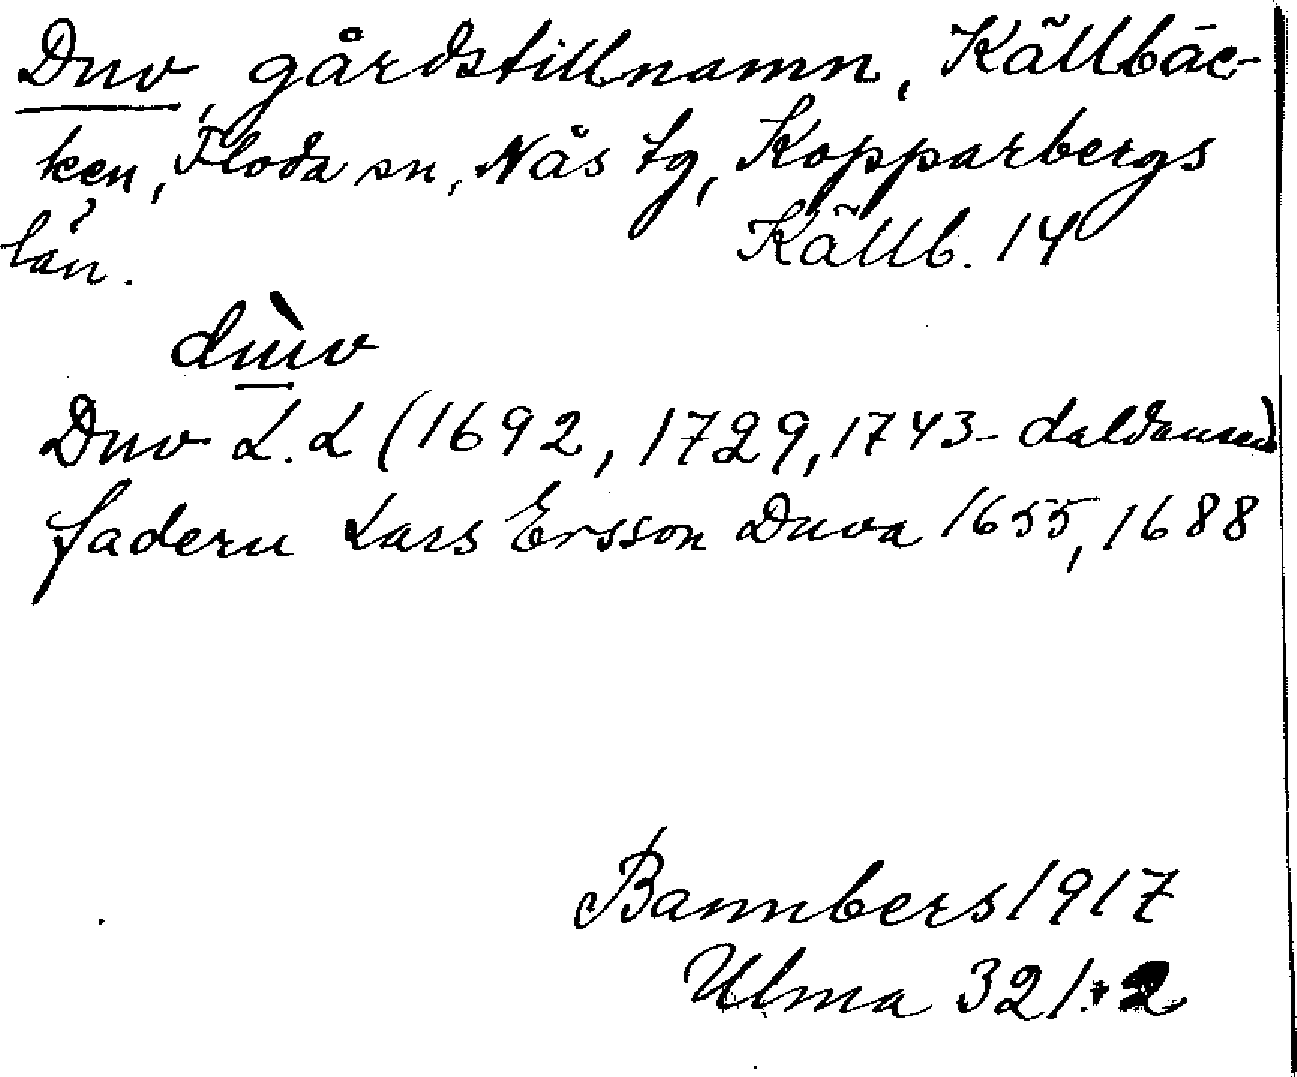 Duv, gårdstillnamn, Källbäc-
ken, Floda sn, Nås tg, Kopparbergs
län. Källb. 14
dùv
Duv L. L (1692, 1729, 1743 - daldansen)
fadern Lars Ersson Duva 1655, 1688
Bannbers 1917
Ulma 321:2